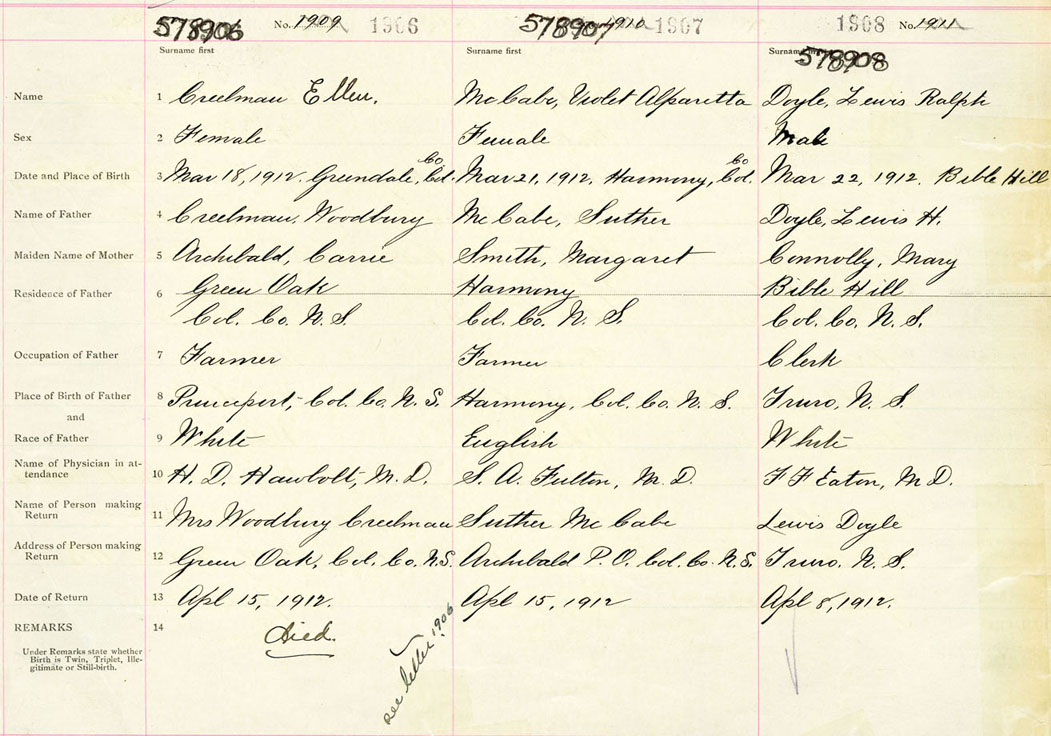 578906 No. 1909 1906 578907 1910 1907 1908 No. 1911
Surname first Surname first Surname first
578908
Name 1 Creelman Ellen. McCabe, Violet Alparetta Doyle, Lewis Ralph
Sex 2 Female Female Male
Date and Place of Birth 3 Mar 18, 1912. Greendale, Col. Co. Mar 21, 1912, Harmony, Col. Co Mar 22, 1912. Bible Hill
Name of Father 4 Creelman, Woodbury McCabe, Suther Doyle, Lewis H.
Maiden Name of Mother 5 Archibald, Carrie Smith, Margaret Connolly, Mary
Residence of Father 6 Green Oak Harmony Bible Hill
Col. Co. N. S. Col. Co. N. S. Col. Co. N. S.
Occupation of Father 7 Farmer Farmer Clerk
Place of Birth of Father 8 Princeport, Col. Co. N. S. Harmony, Col. Co. N. S. Truro, N. S.
and
Race of Father 9 White English White
Name of Physician in at-
tendance 10 H. D. M. D. S. A. Fulton, M. D. F F Eaton, M D.
Name of Person making
Return 11 Mrs Woodbury Creelman Suther McCabe Lewis Doyle
Address of Person making
Return 12 Green Oak, Col. Co. N.S. Archibald P. O. Col. Co. N. S. Truro, N. S.
Date of Return 13 Apl 15, 1912. Apl 15, 1912 Apl 8, 1912.
REMARKS 14 died.
see letter 1906
Under Remarks state whether
Birth is Twin, Triplet, Ille-
gitimate or Still-birth.